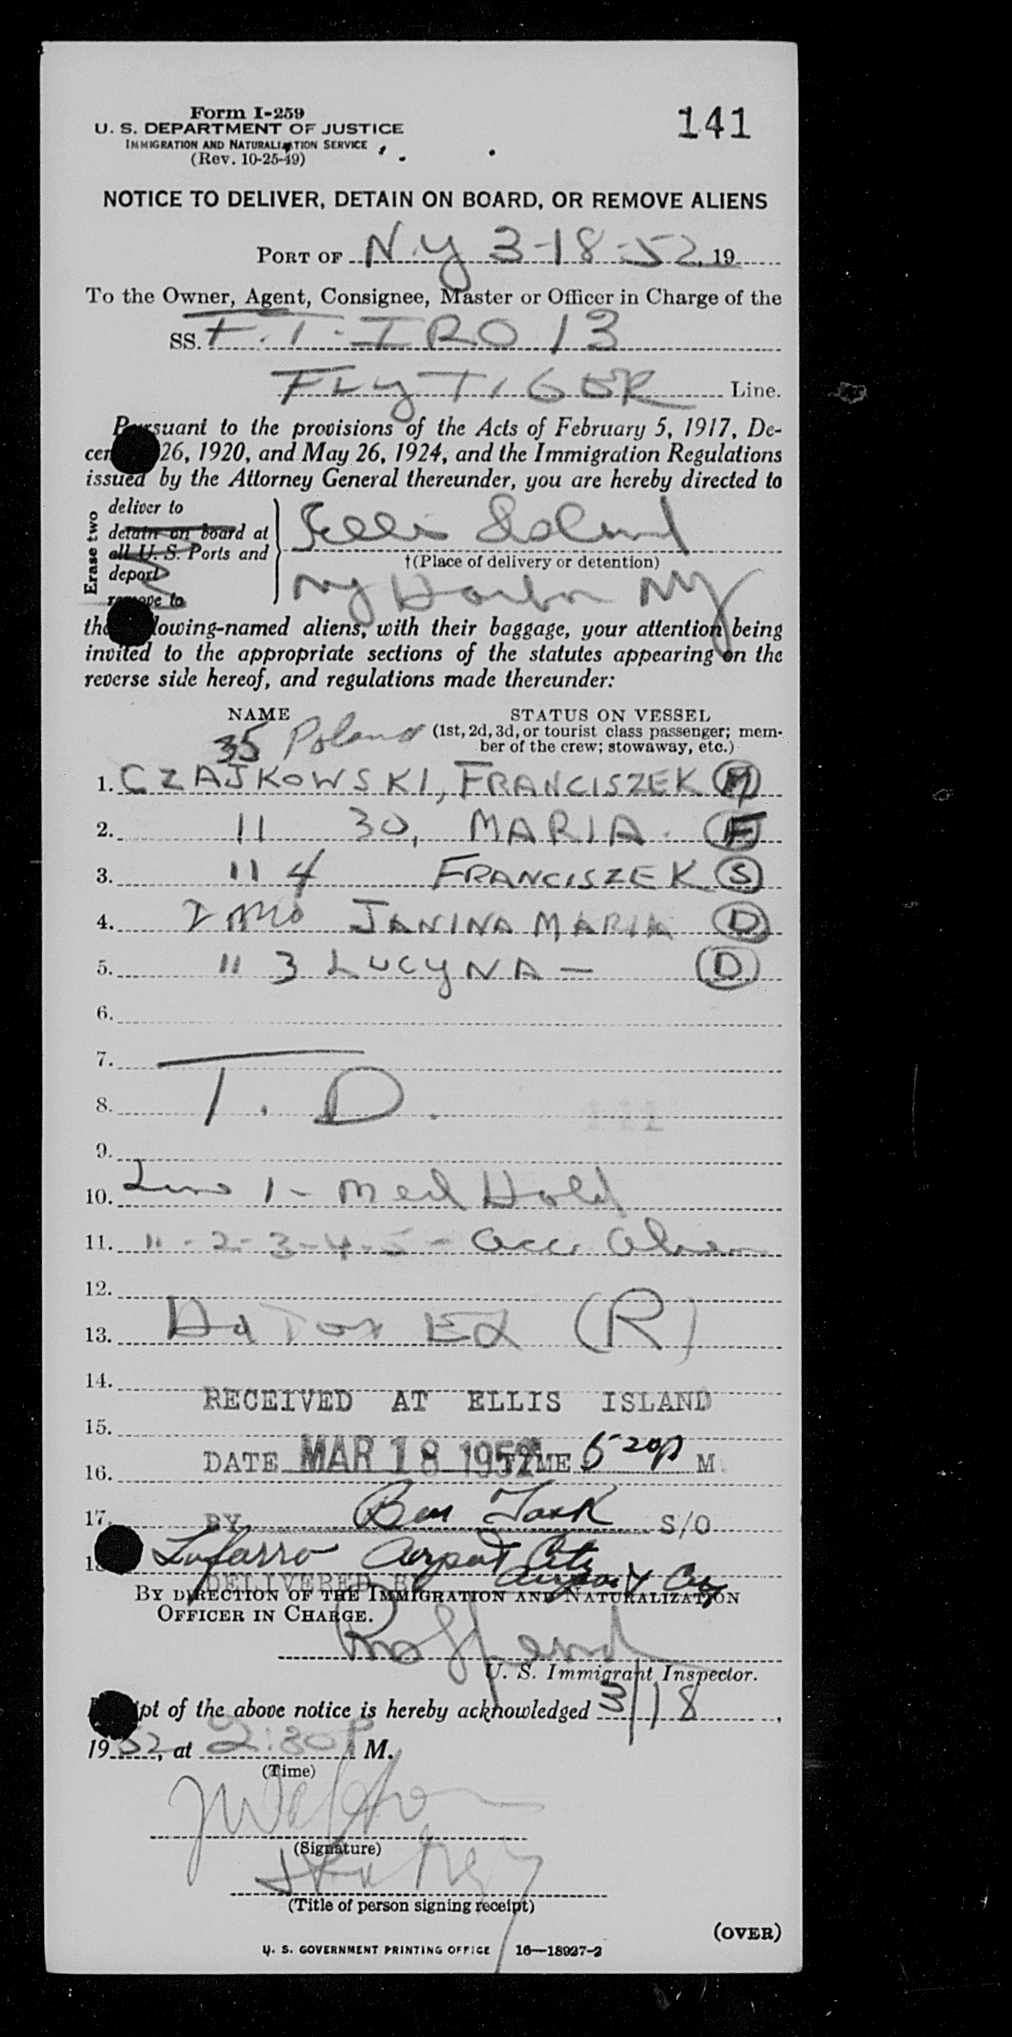 Form I-259
141
U. S. DEPARTMENT OF JUSTICE
IMMIGRATION AND NATURALIZATION SERVICE
(Rev. 10-25-49)
NOTICE TO DELIVER, DETAIN ON BOARD, OR REMOVE ALIENS
PORT OF N.Y 3-18-52, 19
To the Owner, Agent, Consignee, Master or Officer in Charge of the
SS. F.T. IRO 13
FLY TIGER Line.
Pursuant to the provisions of the Acts of February 5, 1917, De-
cem 26, 1920, and May 26, 1924, and the Immigration Regulations
issued by the Attorney General thereunder, you are hereby directed to
Erase two
deliver to
detain on board at
all U. S. Ports and
deport
remove to
Ellis Island
†(Place of delivery or detention)
NY Harbor NY
the lowing-named aliens, with their baggage, your attention being
invited to the appropriate sections of the statutes appearing on the
reverse side hereof, and regulations made thereunder:
NAME STATUS ON VESSEL
35 Poland (1st, 2d, 3d, or tourist class passenger; mem-
ber of the crew; stowaway, etc.)
1. CZAJKOWSKI, FRANCISZEK M
2. 11 30, MARIA. F
3. 11 4 FRANCISZEK S
4. 2 mo JANINA MARIA D
5. 11 3 LUCYNA — D
6.
7.
8. T. D.
9.
10. Line 1 - Med Hold
11. " - 2-3-4-5 - Acc. Alien
12.
13. Ed (R)
14.
RECEIVED AT ELLIS ISLAND
15.
DATE MAR 18 1952 TIME 520p M.
16.
17. BY Ben S/O
18 Airport City
DELIVERED BY Airport City
BY DIRECTION OF THE IMMIGRATION AND NATURALIZATION
OFFICER IN CHARGE.
U. S. Immigrant Inspector.
pt of the above notice is hereby acknowledged 3/18,
1952, at 2:30P M.
(Time)
(Signature)
(Title of person signing receipt)
(OVER)
U. S. GOVERNMENT PRINTING OFFICE 16—18927-2